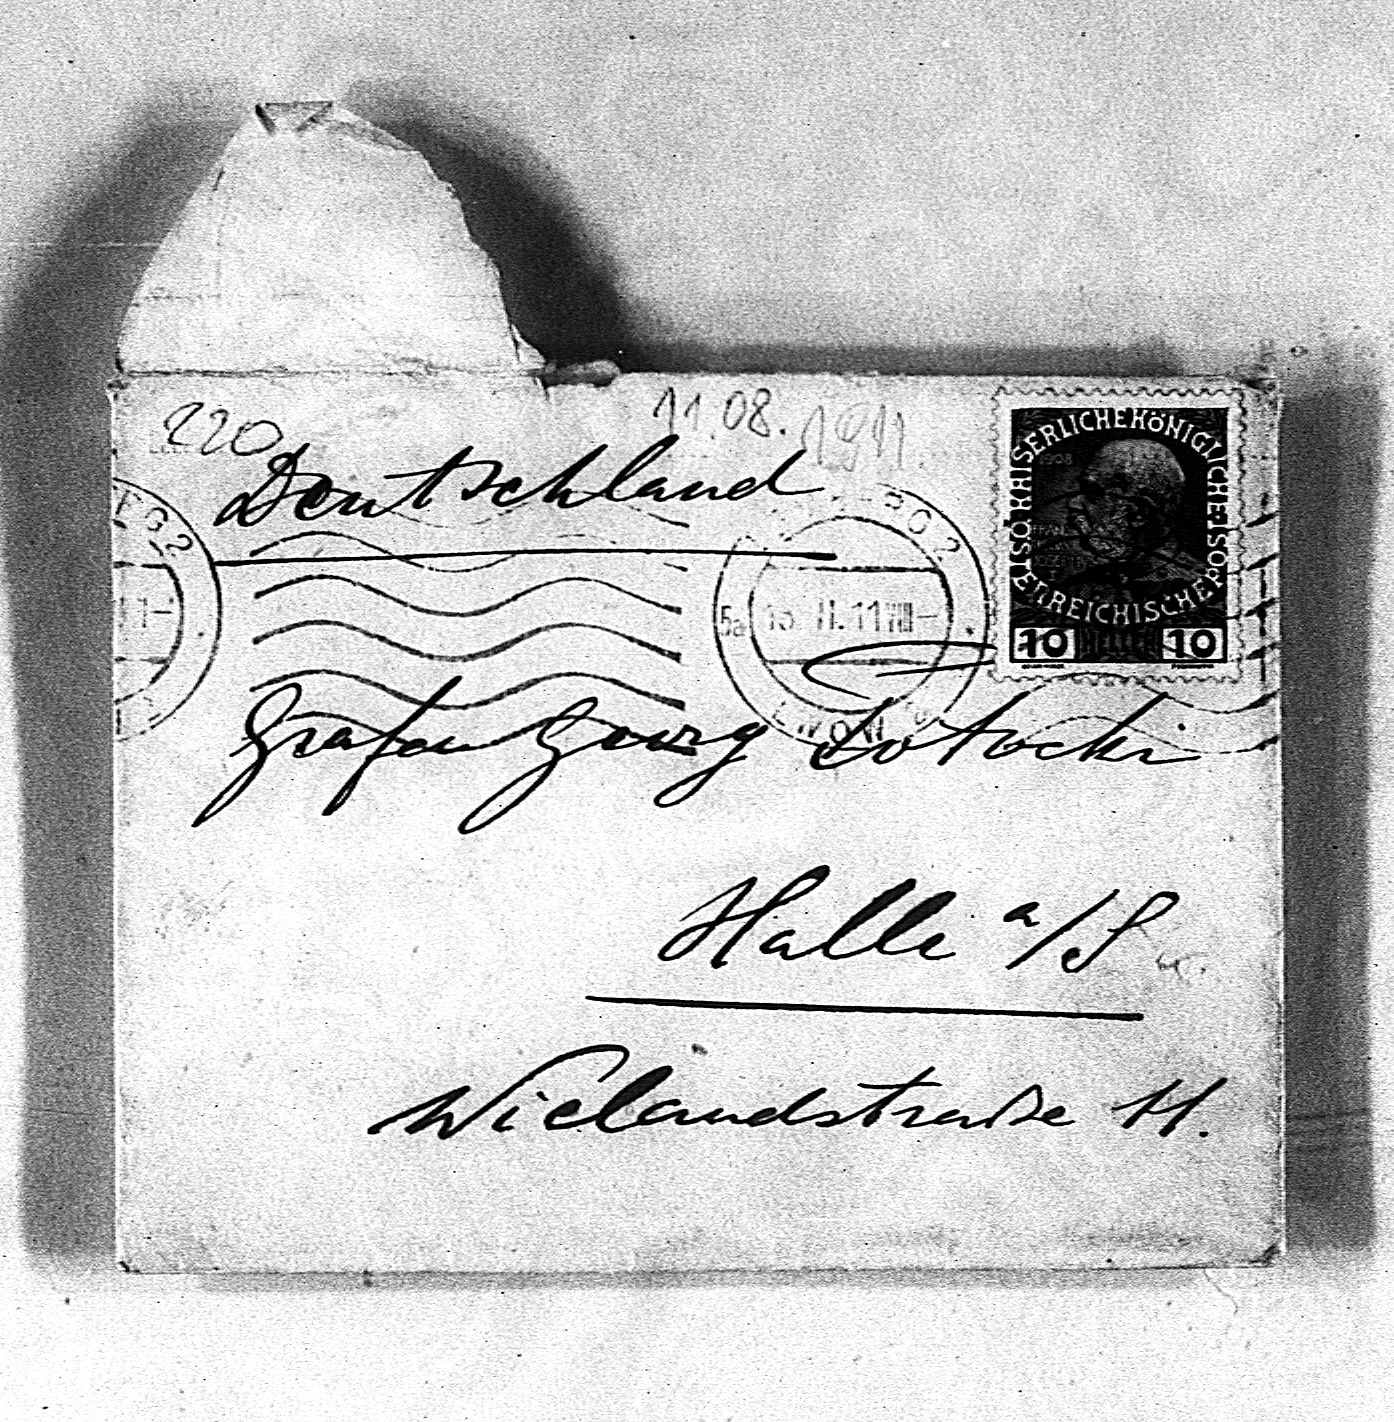 220
11.08.1911
Deutschland
KAISERLICHE KÖNIGLICHE
ÖSTERREICHISCHE POST
1908
10 10
EG 2
5a 11 VIII-
LWÓW
Grafen Georg Potocki
Halle a/S
Wielandstraße 11.